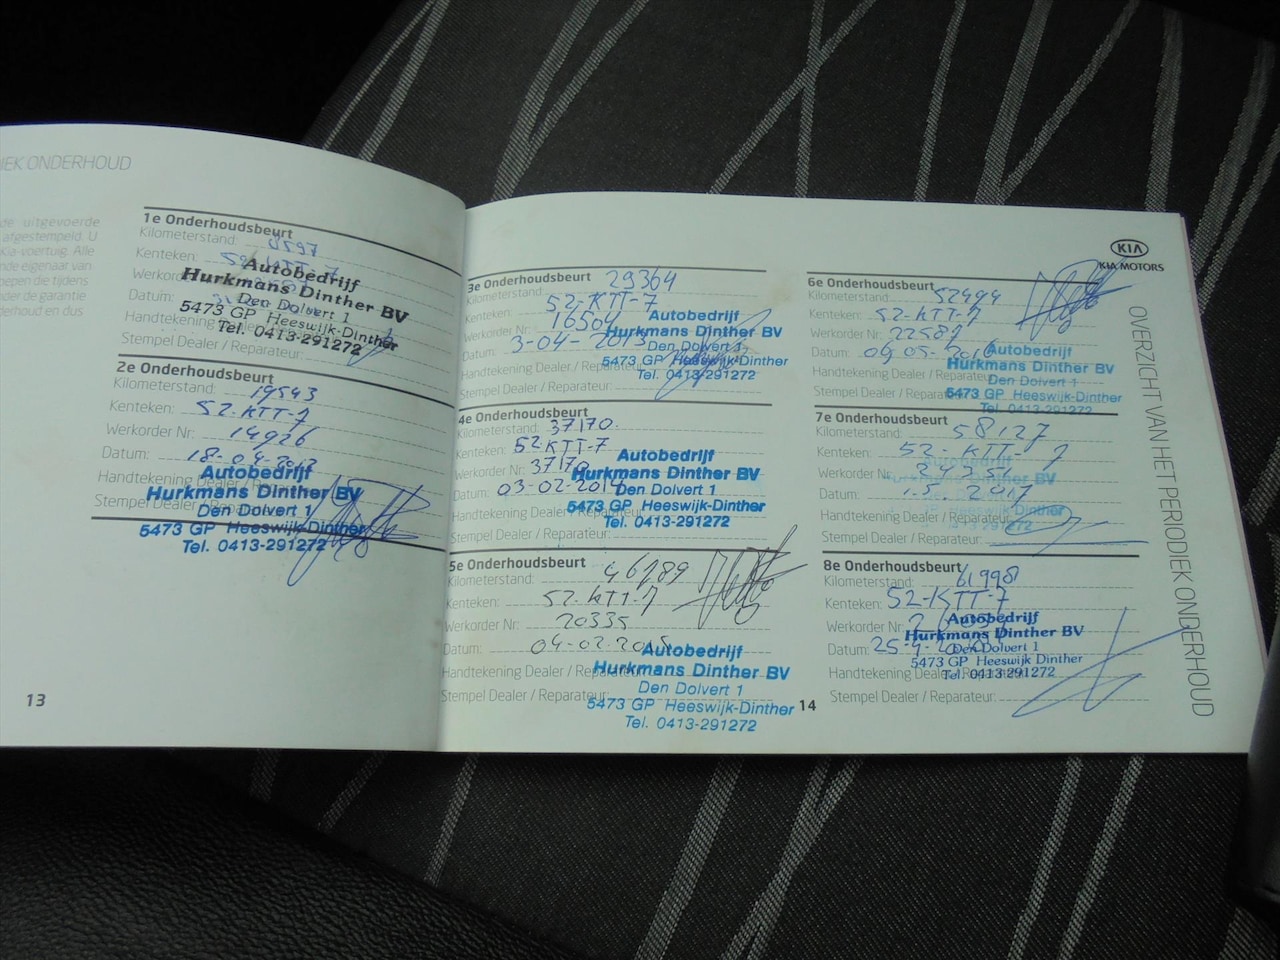 IEK ONDERHOUD
de uitgevoerde
afgestempeld. U
Kia-voertuig. Alle
nde eigenaar van
epen die tijdens
nder de garantie
derhoud en dus
1e Onderhoudsbeurt
Kilometerstand: 8597
Kenteken: 52-KTT-7
Werkorder
Datum:
Handtekening Dealer
Stempel Dealer / Reparateur:
Autobedrijf
Hurkmans Dinther BV
Den Dolvert 1
5473 GP Heeswijk-Dinther
Tel. 0413-291272
2e Onderhoudsbeurt
Kilometerstand: 19543
Kenteken: 52-KTT-7
Werkorder Nr: 14926
Datum: 18-04-2012
Handtekening Dealer
Stempel Dealer / Reparateur
Autobedrijf
Hurkmans Dinther BV
Den Dolvert 1
5473 GP Heeswijk-Dinther
Tel. 0413-291272
13
3e Onderhoudsbeurt
Kilometerstand: 29364
Kenteken: 52-KTT-7
Werkorder Nr: 16504
Datum: 3-04-2013
Handtekening Dealer / Reparateur:
Stempel Dealer / Reparateur:
Autobedrijf
Hurkmans Dinther BV
Den Dolvert 1
5473 GP Heeswijk-Dinther
Tel. 0413-291272
4e Onderhoudsbeurt
Kilometerstand: 37170
Kenteken: 52-KTT-7
Werkorder Nr: 37170
Datum: 03-02-2014
Handtekening Dealer / Reparateur:
Stempel Dealer / Reparateur:
Autobedrijf
Hurkmans Dinther BV
Den Dolvert 1
5473 GP Heeswijk-Dinther
Tel. 0413-291272
5e Onderhoudsbeurt
Kilometerstand: 46289
Kenteken: 52-KTT-7
Werkorder Nr: 20335
Datum: 04-02-2015
Handtekening Dealer / Reparateur:
Stempel Dealer / Reparateur:
Autobedrijf
Hurkmans Dinther BV
Den Dolvert 1
5473 GP Heeswijk-Dinther
Tel. 0413-291272
14
KIA
KIA MOTORS
6e Onderhoudsbeurt
Kilometerstand: 52494
Kenteken: 52-KTT-7
Werkorder Nr: 22587
Datum: 09-05-2016
Handtekening Dealer / Reparateur
Stempel Dealer / Reparateur
Autobedrijf
Hurkmans Dinther BV
Den Dolvert 1
5473 GP Heeswijk-Dinther
Tel. 0413-291272
7e Onderhoudsbeurt
Kilometerstand: 58127
Kenteken: 52-KTT-7
Werkorder Nr:
Datum: 1.5. 2017
Handtekening Dealer / Reparateur:
Stempel Dealer / Reparateur:
8e Onderhoudsbeurt
Kilometerstand: 61998
Kenteken: 52-KTT-7
Werkorder Nr:
Datum: 25-4-20
Handtekening Dealer / Reparateur:
Stempel Dealer / Reparateur:
Autobedrijf
Hurkmans Dinther BV
Den Dolvert 1
5473 GP Heeswijk Dinther
Tel. 0413-291272
OVERZICHT VAN HET PERIODIEK ONDERHOUD